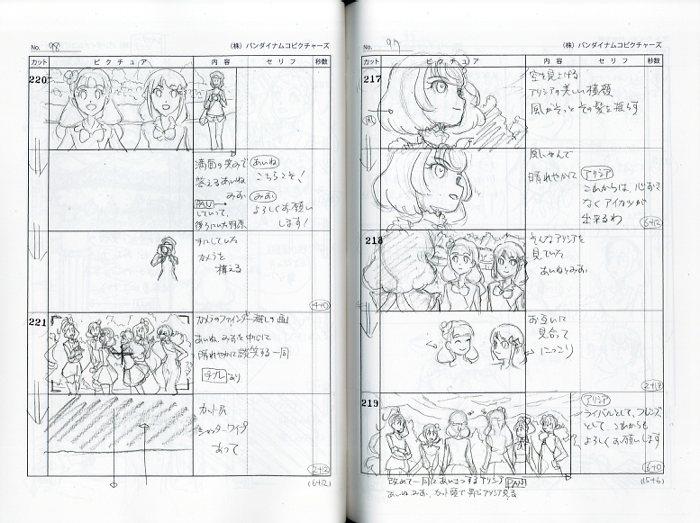 No. 98
(株)バンダイナムコピクチャーズ
カット ピクチュア 内容 セリフ 秒数
220
満面の笑みで
答えるあいね
みお
PAN
カメラを
構える
あいね
こちらこそ!
みお
よろしくお願い
します!
(4+0)
221
カメラのファインダー越しの画
あいね、みおを中心に
晴れやかに談笑する一同
手ブレあり
カット尻
シャッターワイプ
あって
(2+12)
(6+12)
No. 97
(株)バンダイナムコピクチャーズ
カット ピクチュア 内容 セリフ 秒数
217
空を見上げる
アリシアの美しい横顔
風がそっとその髪を揺らす
風がやんで
晴れやかに
アリシア
これからは、心おき
なくアイカツが
出来るわ
(6+12)
218
そんなアリシアを
見ている
あいねとみお
お互いに
見合って
にっこり
(2+18)
219
アリシア
ライバルとして、フレンズ
として これからも
よろしくお願いします
(6+0)
改めて一同にあいさつするアリシア PAN
あいね、みお、カット頭で
(15+6)